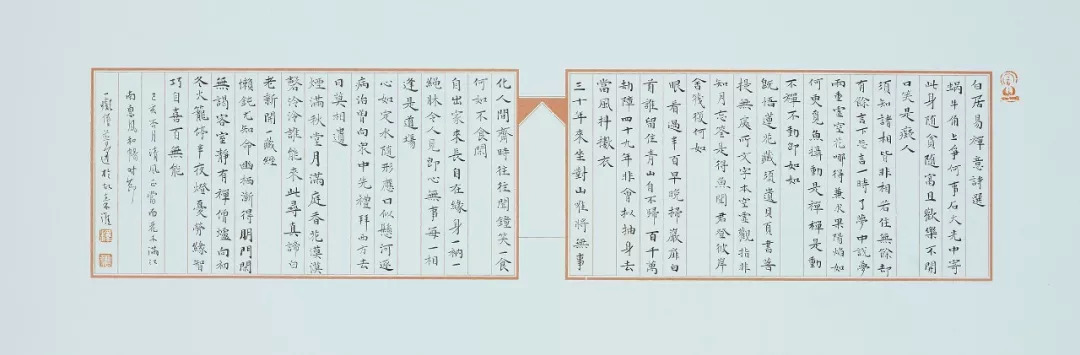 白居易禪意詩選
蝸牛角上爭何事石火光中寄
此身隨貧隨富且歡樂不開
口笑是癡人
須知諸相皆非相若住無餘卻
有餘言下忘言一時了夢中說夢
兩重虛空花哪得兼求果陽焰如
何更覓魚攝動是禪禪是動
不禪不動即如如
既悟蓮花藏須遺貝頁書菩
提無處所文字本空虛觀指非
知月忘筌是得魚聞君登彼岸
舍筏復何如
眼看過半百早晚掃巖扉白
首誰留住青山自不歸百千萬
劫障四十九年非會擬抽身去
當風抖擻衣
三十年來坐對山唯將無事
化人間齋時往往聞鐘笑一食
何如不食閑
自出家來長自在緣身一衲一
繩床令人見即心無事每一相
逢是道場
心如定水隨形應口似懸河逐
病治曾向眾中先禮拜西方去
日莫相遺
煙滿秋堂月滿庭香花漠漠
磬泠泠誰能來此尋真諦白
老新開一藏經
懶鈍尤知命幽棲漸得朋門閑
無謁客室靜有禪僧爐向初
冬火籠停半夜燈憂勞緣智
巧自喜百無能
月清風正當雨花
南惠風和暢時節